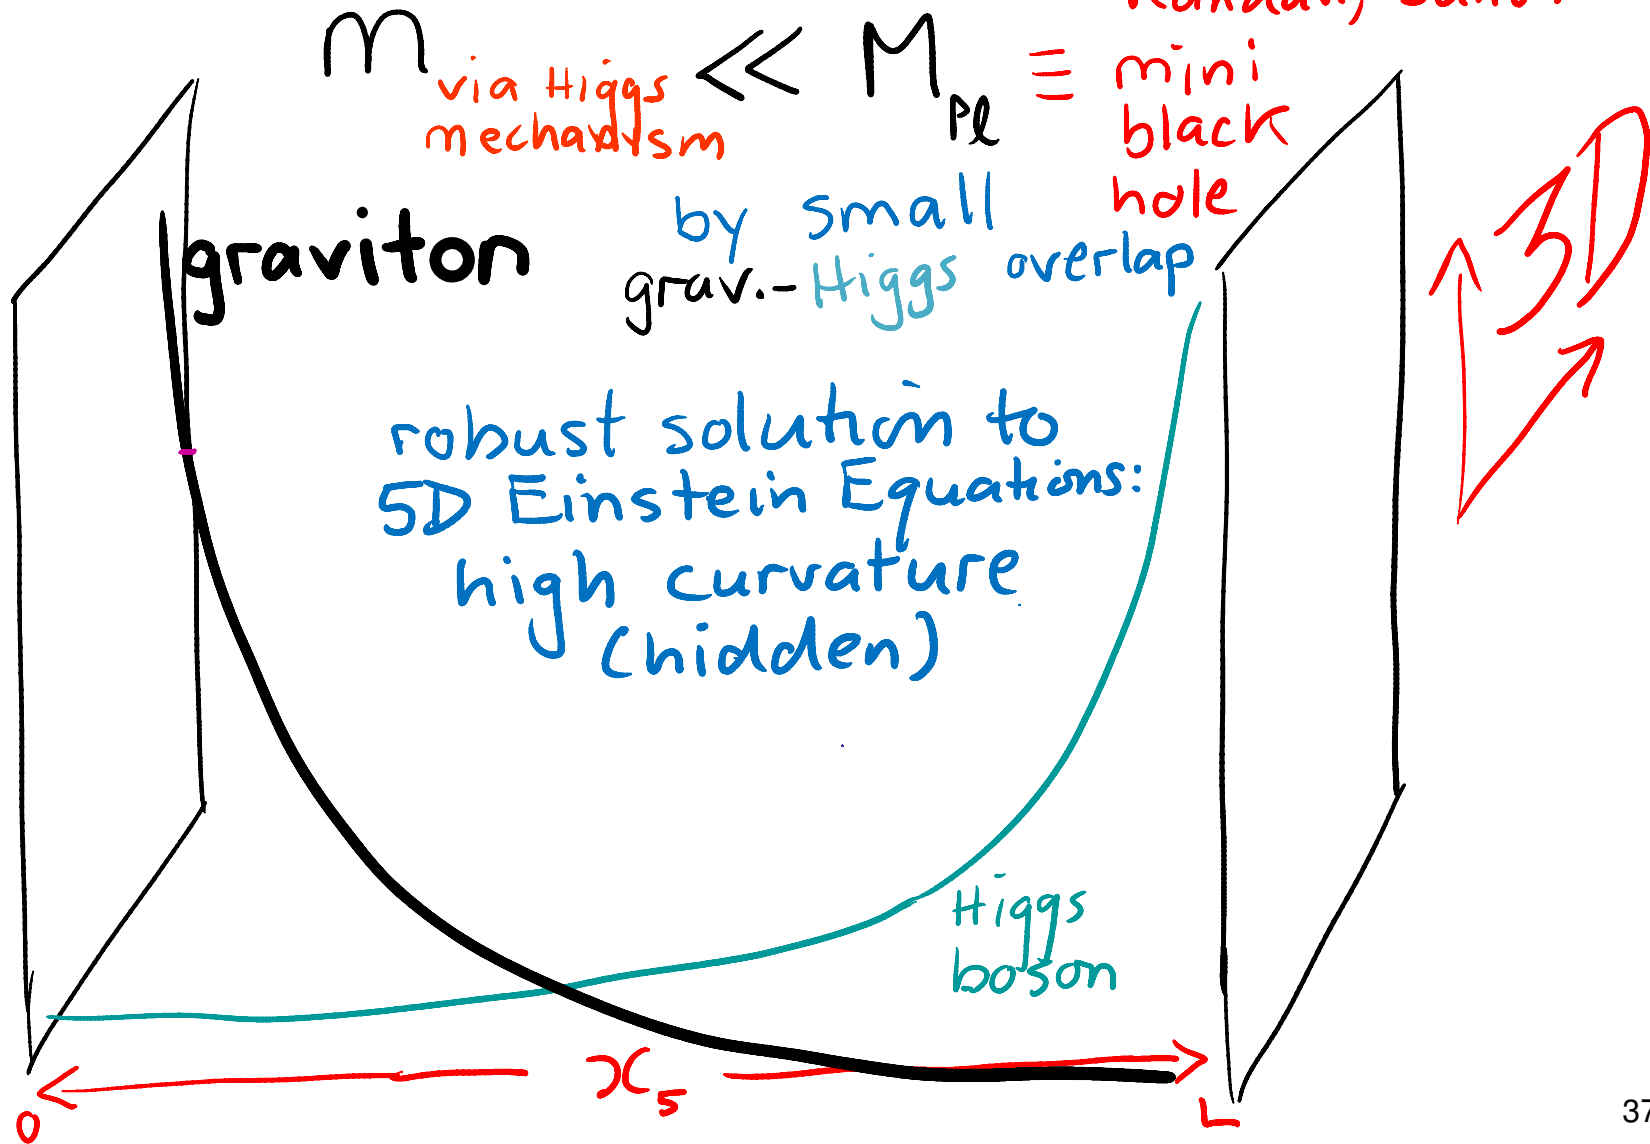 m via Higgs mechanism << M Pl ≡ mini black hole
graviton
by small
grav.-Higgs overlap
robust solution to
5D Einstein Equations:
high curvature
(hidden)
3D
Higgs
boson
x5
0
L
37